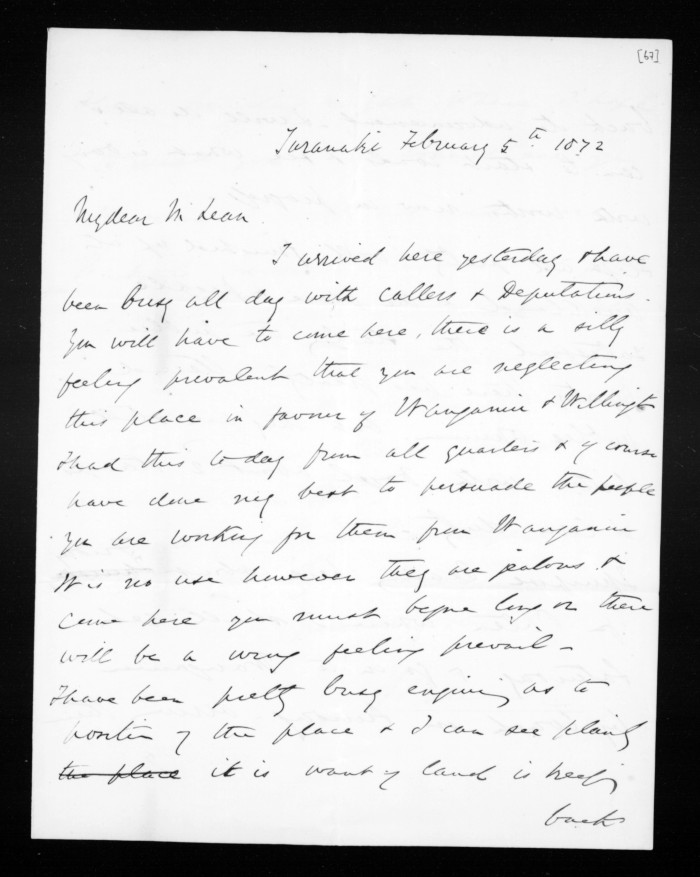 [67]
Taranaki February 5th 1872
My dear McLean
I arrived here yesterday & have
been busy all day with callers & Deputations.
You will have to come here, there is a silly
feeling prevalent that you are neglecting
this place in favour of Wanganui & Wellington
I had this to day from all quarters & of course
have done my best to persuade the people
you are working for them from Wanganui
It is no use however they are jealous &
come here you must before long or there
will be a wrong feeling prevail -
I have been pretty busy enquiring as to
position of the place & I can see plainly
the place it is want of land is keeping
back